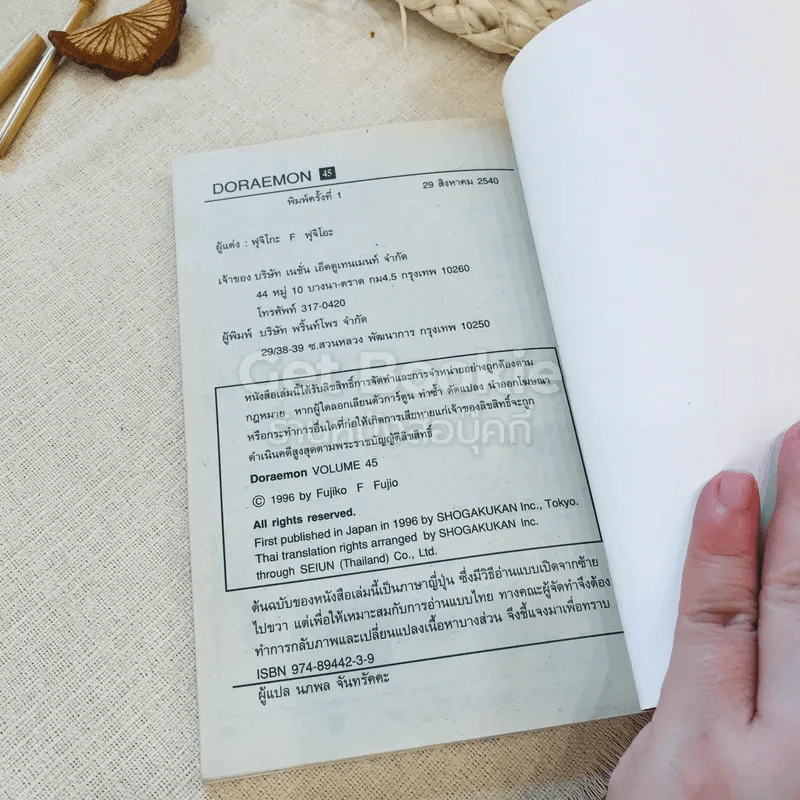 DORAEMON 45
พิมพ์ครั้งที่ 1 29 สิงหาคม 2540
ผู้แต่ง : ฟุจิโกะ F ฟุจิโอะ
เจ้าของ บริษัท เนชั่น เอ็ดดูเทนเมนท์ จำกัด
44 หมู่ 10 บางนา-ตราด กม4.5 กรุงเทพ 10260
โทรศัพท์ 317-0420
ผู้พิมพ์ บริษัท พริ้นท์โพร จำกัด
29/38-39 ซ.สวนหลวง พัฒนาการ กรุงเทพ 10250
หนังสือเล่มนี้ได้รับลิขสิทธิ์การจัดทำและการจำหน่ายอย่างถูกต้องตาม
กฎหมาย หากผู้ใดลอกเลียนตัวการ์ตูน ทำซ้ำ ดัดแปลง นำออกโฆษณา
หรือกระทำการอื่นใดที่ก่อให้เกิดการเสียหายแก่เจ้าของลิขสิทธิ์จะถูก
ดำเนินคดีสูงสุดตามพระราชบัญญัติลิขสิทธิ์
Doraemon VOLUME 45
© 1996 by Fujiko F Fujio
All rights reserved.
First published in Japan in 1996 by SHOGAKUKAN Inc., Tokyo.
Thai translation rights arranged by SHOGAKUKAN Inc.
through SEIUN (Thailand) Co., Ltd.
ต้นฉบับของหนังสือเล่มนี้เป็นภาษาญี่ปุ่น ซึ่งมีวิธีอ่านแบบเปิดจากซ้าย
ไปขวา แต่เพื่อให้เหมาะสมกับการอ่านแบบไทย ทางคณะผู้จัดทำจึงต้อง
ทำการกลับภาพและเปลี่ยนแปลงเนื้อหาบางส่วน จึงชี้แจงมาเพื่อทราบ
ISBN 974-89442-3-9
ผู้แปล นภพล จันทรัคคะ
Get Bookie
ร้านหนังสือบุคกี้